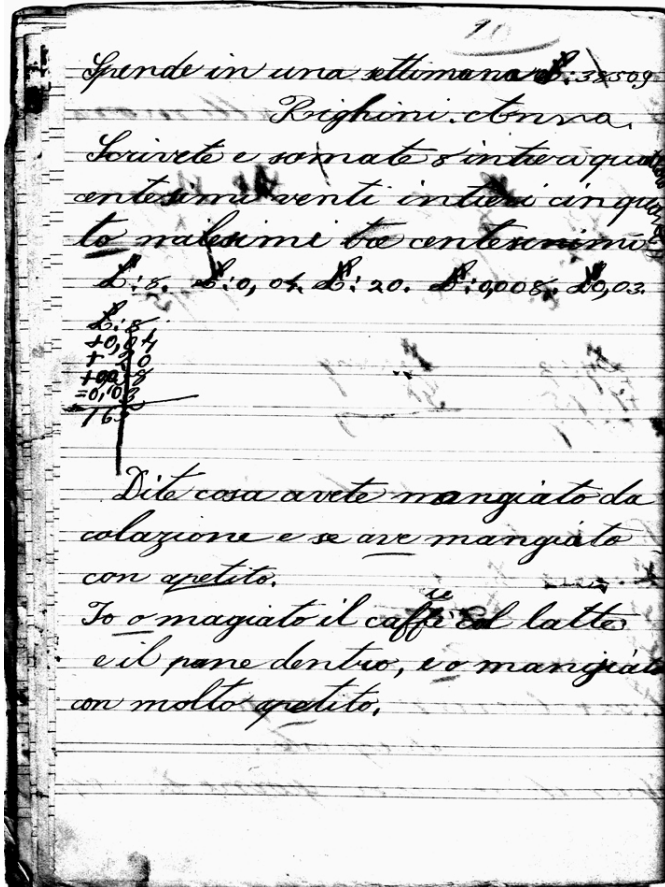 10
Spende in una settimana L: 38509
Righini. Anna.
Scrivete e somate 8 intieri quat
centesimi venti intieri cinque
to malesimi tre centesimi
L: 8. L: 0, 04. L: 20. L: 0,008. L0,03.
L: 8
+0,04
+ 20
+0,08
=0,03
163
Dite cosa avete mangiato da
colazione e se ave mangiato
con apetito.
Io o magiato il caffè col latte
e il pane dentro, e o mangiato
con molto apetito.